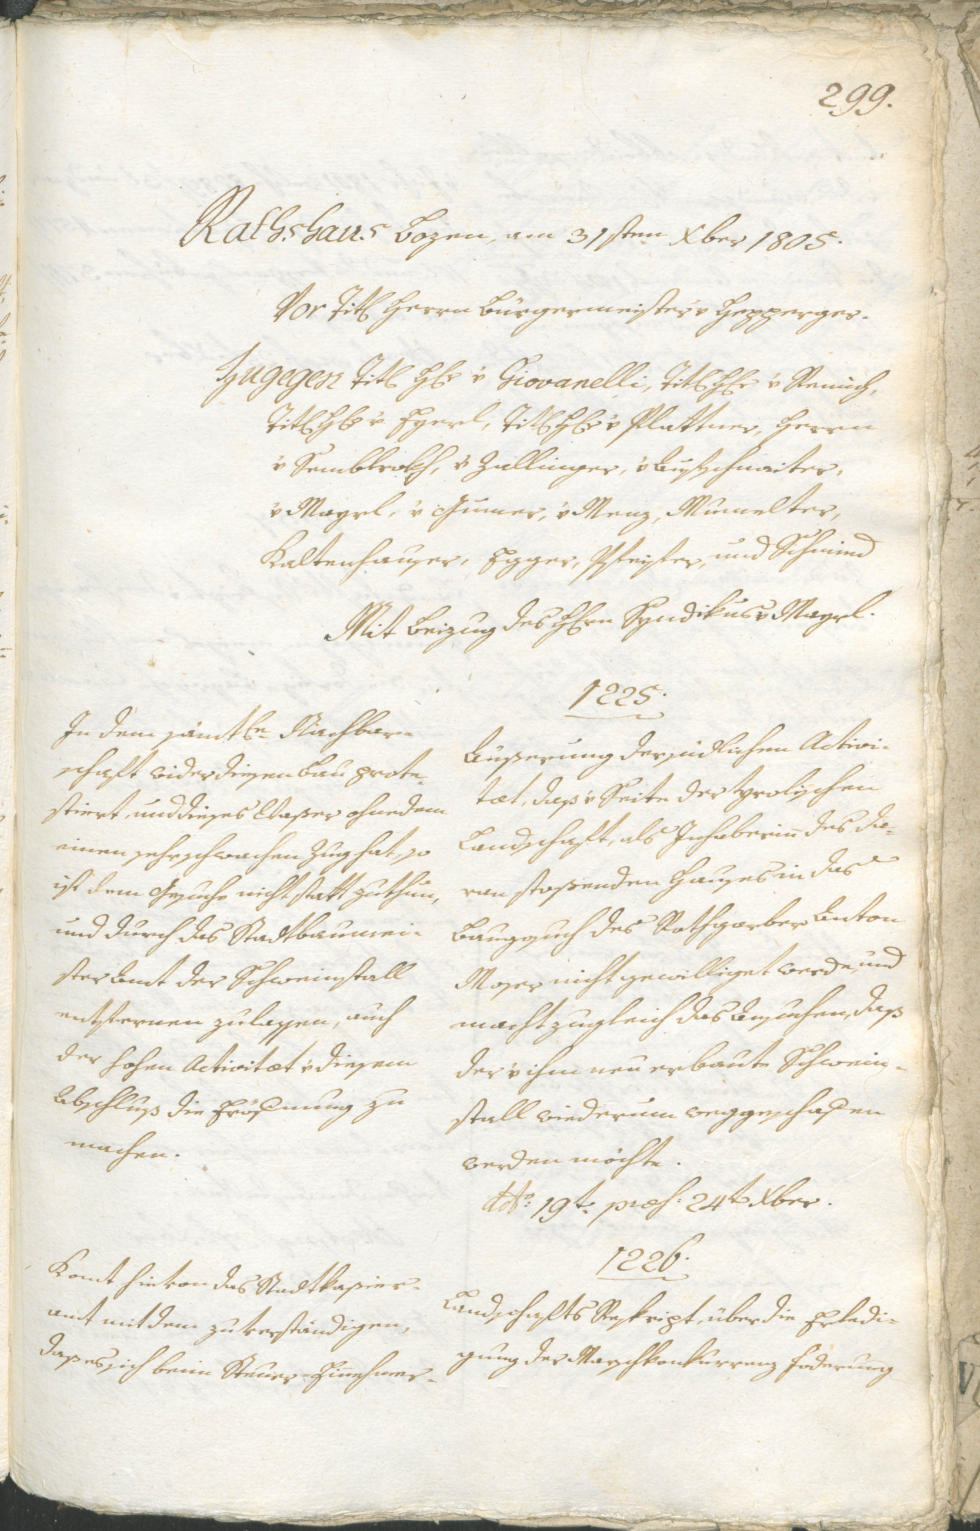 299.
Rathshaus Bozen, am 31sten Xber 1805.
Vor Titl Herrn Bürgermeister v Hepperger.
Zugegen Titl HE v Giovanelli, Titl HE v Remich,
Titl HE v Eyerl, Titl HE v Plattner, Herrn
v Sembl, v Zallinger, v
v Mayrl, v Gumer, v Menz, Mumelter,
Kaltenhauser, Egger, Pfeifer, und Schmid
Mit Beizug des HErn Syndikus v Mayrl.
1225.
Äußerung der südlichen Activi-
tæt, daß v Seite der tyrolischen
Landschaft, als Inhaberin des da-
ran stoßenden Hauses in das
Baugesuch des Rothgerber Anton
Moser nicht gewilliget werde, und
macht zugleich das Ansuchen, daß
der v ihm neu erbaute Schwein-
stall wiederum weggeschafen
werden möchte.
ddo: 19t. præs: 24t Xber.
In dem sämtle Nachbar-
schaft wider diesen Bau prote-
stiert, und dieses Waßer ohnedem
einen sehr schwachen Zug hat, so
ist dem Gesuche nicht statt zu thun,
und durch das Stadtbaumei-
ster Amt der Schweinstall
entfernen zu lassen, auch
der hohen Activitæt v diesem
Abschluß die Eröfnung zu
machen.
1226.
Landschafts Reskript, über die Erledi-
gung der Marschkonkurrenz Foderung
Komt hievon das Stadtkassier-
amt mit dem zu verständigen,
daß es sich beim Steuer-Einnehmer-